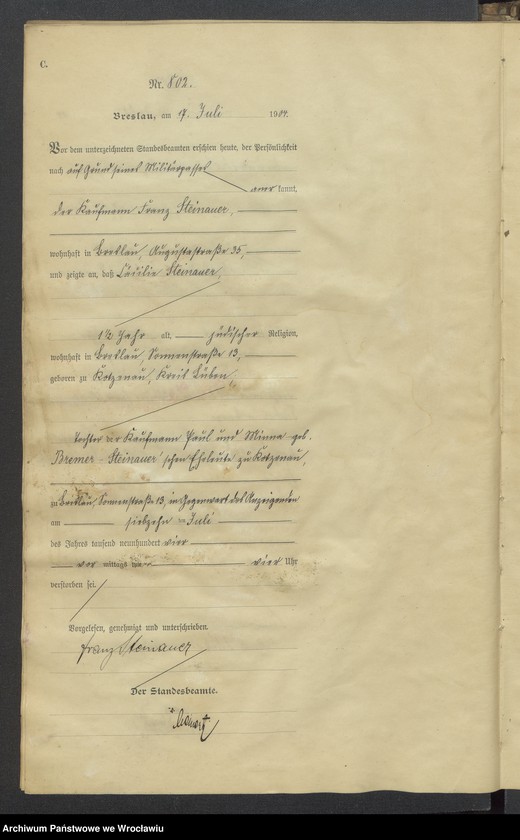 C.
Nr. 802.
Breslau, am 17. Juli 1904.
Vor dem unterzeichneten Standesbeamten erschien heute, der Persönlichkeit
nach auf Grund seines Militärpasses
anerkannt,
der Kaufmann Franz Steinauer,
wohnhaft in Breslau, Augustastraße 35,
und zeigte an, daß Cäcilie Steinauer,
1½ Jahr alt, jüdischer Religion,
wohnhaft in Breslau, Sonnenstraße 13,
geboren zu Kotzenau, Kreis Lüben
Tochter der Kaufmann Paul und Minna geb.
Bremer-Steinauer'schen Eheleute zu Kotzenau,
zu Breslau, Sonnenstraße 13, in Gegenwart des Anzeigenden
am siebzehnten Juli
des Jahres tausend neunhundert vier
vor mittags um vier Uhr
verstorben sei.
Vorgelesen, genehmigt und unterschrieben.
Franz Steinauer
Der Standesbeamte.
Archiwum Państwowe we Wrocławiu